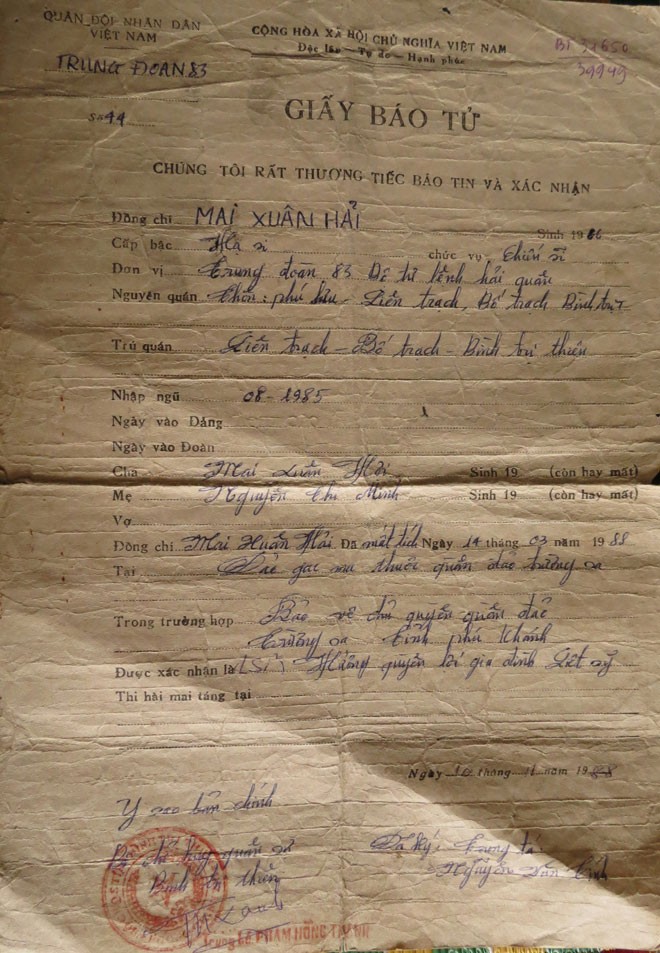 QUÂN ĐỘI NHÂN DÂN
VIỆT NAM
TRUNG ĐOÀN 83
Số 44
CỘNG HÒA XÃ HỘI CHỦ NGHĨA VIỆT NAM
Độc lập — Tự do — Hạnh phúc
BT 31650
39949
GIẤY BÁO TỬ
CHÚNG TÔI RẤT THƯƠNG TIẾC BÁO TIN VÀ XÁC NHẬN
Đồng chí MAI XUÂN HẢI Sinh 19 66
Cấp bậc Hạ sĩ chức vụ Chiến sĩ
Đơn vị Trung đoàn 83 Bộ tư lệnh hải quân
Nguyên quán Thôn: phú hữu - Liên trạch, Bố trạch Bình trị
Trú quán Liên trạch - Bố trạch - Bình trị thiên
Nhập ngũ 08-1985
Ngày vào Đảng
Ngày vào Đoàn
Cha Mai Xuân Sinh 19 (còn hay mất)
Mẹ Nguyễn Thị Minh Sinh 19 (còn hay mất)
Vợ
Đồng chí Mai Xuân Hải Đã mất tích Ngày 14 tháng 03 năm 1988
Tại Đảo gạc ma thuộc quần đảo trường sa
Trong trường hợp Bảo vệ chủ quyền quần đảo
trường sa tỉnh phú khánh
Được xác nhận là LSĩ: Hưởng quyền lợi gia đình Liệt sỹ
Thi hài mai táng tại
Ngày 10 tháng 11 năm 1988
Y sao bản chính
Bộ chỉ huy quân sự
Bình trị thiên
Đã ký: Trung tá
Nguyễn Văn
Trung tá PHẠM HỒNG THANH